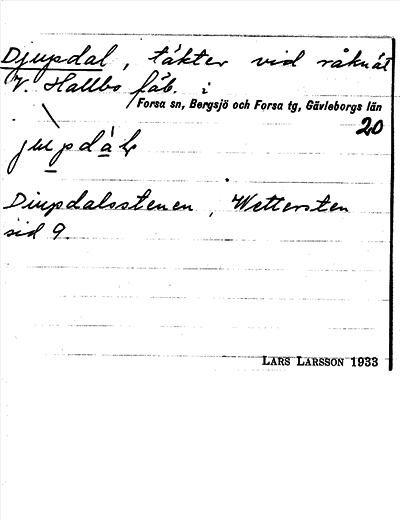 Djupdal, täkter vid råknät
V. Hallbo fäb. i
Forsa sn, Bergsjö och Forsa tg, Gävleborgs län
20
Djupdalsstenen, Wettersten
sid 9.
LARS LARSSON 1933